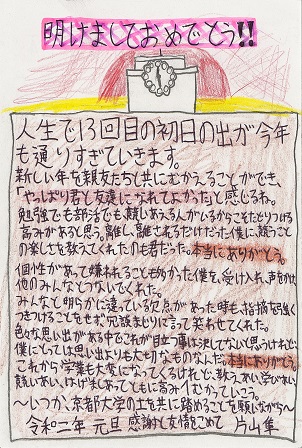 明けましておめでとう!!
人生で13回目の初日の出が今年
も通りすぎていきます。
新しい年を親友たちと共にむかえることができ、
「やっぱり君と友達になれてよかった」と感じるね。
勉強でも部活でも競いあえる人がいるからこそたどりつける
高みがあると思う。離し、離されるだけだった僕に、競うこと
の楽しさを教えてくれたのも君だった。本当にありがとう。
個性があって嫌われることも多かった僕を、受け入れ、声をかけ、
他のみんなとつないでくれた。
みんなと明らかに違っている欠点があった時も、指摘を
つきつけることをせず、冗談まじりに言って笑わせてくれた。
色々な思い出がある中でこれが目立つ事は決してないと思うけれど、
僕にとっては思い出よりも大切なものなんだ。本当にありがとう。
これから学業も大変になってくるけれど、教えあい、学びあい、
競いあい、はげましあってともに高みにむかっていこう。
〜いつか、京都大学の土を共に踏めることを願いながら〜
令和二年 元旦 感謝と友情をこめて 片山隼